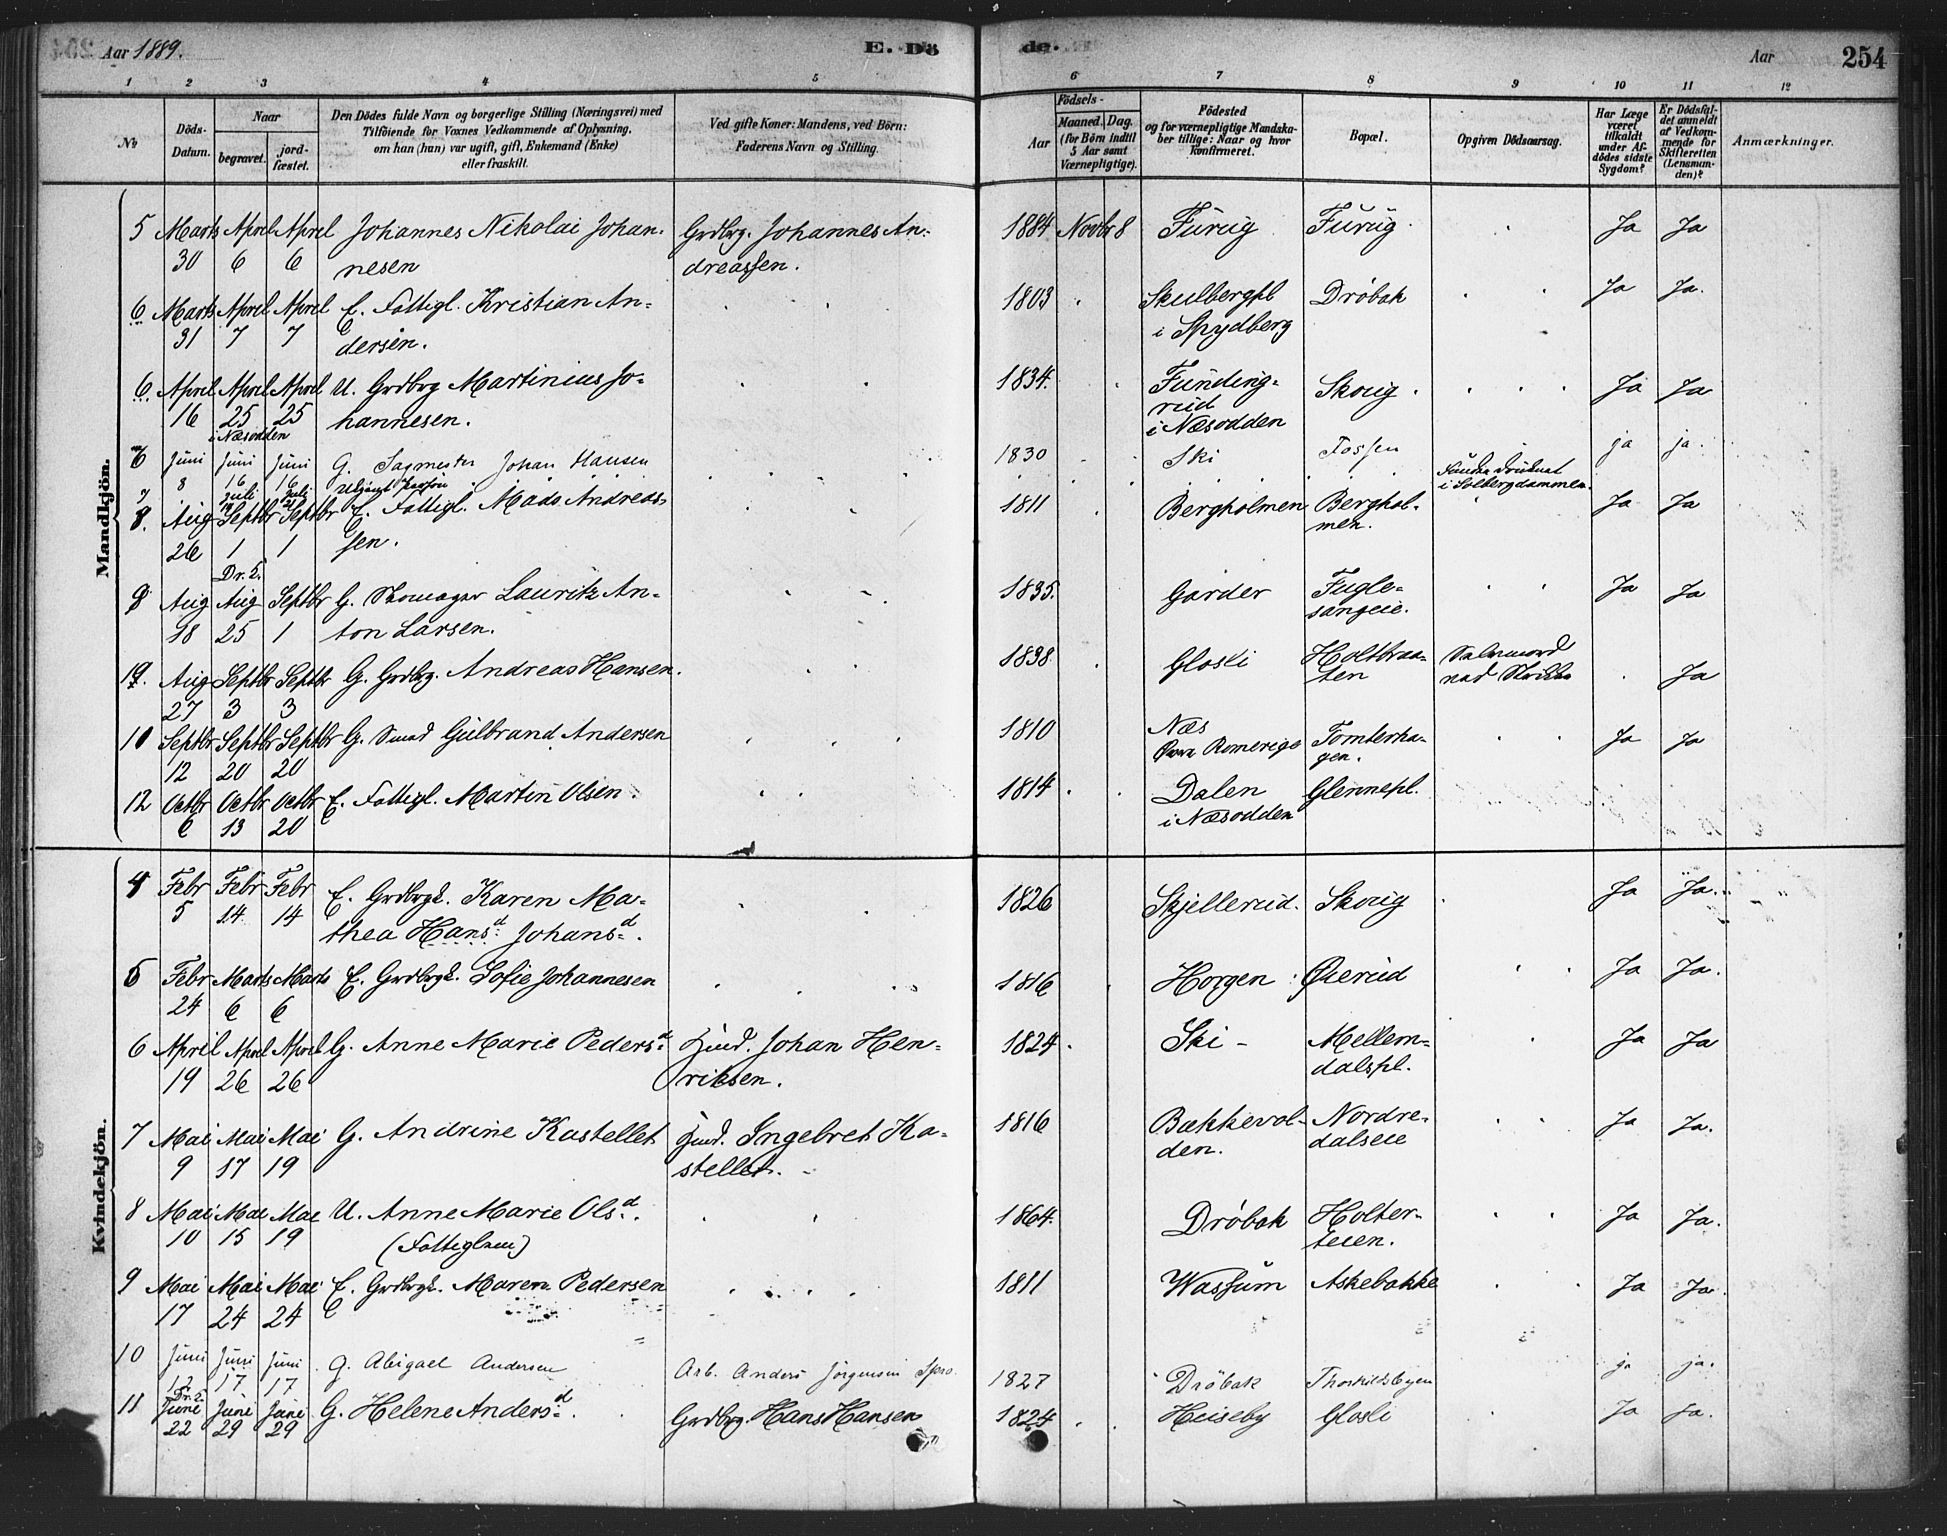 Aar 1889. E. Dö de. Aar 254
1 2 3 4 5 6 7 8 9 10 11 12
No
Döds-Datum.
Naar
begravet.
jordfæstet.
Den Dödes fulde Navn og borgerlige Stilling (Næringsvei) med
Tilföiende for Voxnes Vedkommende af Oplysning,
om han (hun) var ugift, gift, Enkemand (Enke)
eller fraskilt.
Ved gifte Koner: Mandens, ved Börn:
Faderens Navn og Stilling.
Födsels-
Aar
Maaned. Dag.
(for Börn indtil
5 Aar samt
Værnepligtige).
Födested
og for værnepligtige Mandska-
ber tillige: Naar og hvor
konfirmeret.
Bopæl.
Opgiven Dödsaarsag.
Har Læge
været
tilkaldt
under Af-
dödes sidste
Sygdom?
Er Dödsfal-
det anmeldt
af Vedkom-
mende for
Skifteretten
(Lensman-
den)?
Anmærkninger.
Mandkjön.
5 Marts April April Johannes Nikolai Johan- Grdbrg. Johannes An- 1884 Novbr 8 Furug Furug Ja Ja
30 6 6 nesen dreassen.
6 Marts April April E. Fattigl. Kristian An- 1803 Skulbergpl Drøbak Ja Ja.
31 7 7 dersen. i Spydberg
6 April April April U. Grdbrg Martinius Jo- 1834. Funding- Skoug Ja Ja
16 25 25 hannesen. rud
i Næsodden i Næsodden
6 Juni Juni Juni G. Sagmester Johan Hansen 1830 Ski Fossen ja ja.
8 16 16 i Solbergdammen.
7 Juli Juli
8. Aug Septbr Septbr E. Fattigl. Mads Andreas- 1811 Bergholmen Berghol- Ja Ja
26 1 1 sen. men.
Dr. S.
8 Aug Aug Septbr G. Skomager Lauritz An- 1835. Garder Fugle- Ja Ja
18 25 1 ton Larsen. sangeie.
9. Aug Septbr Septbr G. Grdbrg. Andreas Hansen. 1838 Glosli Holtbraa- Selvmord Ja
27 3 3 ten
10 Septbr Septbr Septbr G. Smed Gulbrand Andersen 1810 Næs Tomterha- Ja Ja
12 20 20 Øvre Romerige gen.
12 Octbr Octbr Octbr E. Fattigl. Martin Olsen. 1814 Dalen Glennepl.
6 13 20 i Næsodden
Kvindekjön.
4 Febr Febr Febr E. Grdbrgk. Karen Ma- 1826 Skjellerud. Skoug Ja Ja.
5 14 14 thea Hansd. Johansd.
5 Febr Marts Marts E. Grdbrgk. Sofie Johannesen 1816 Horgen Øierud Ja Ja.
24 6 6
6 April April April G. Anne Marie Pedersd. Husd. Johan Hen- 1824 Ski - Mellem- Ja Ja
19 26 26 riksen. dalspl.
7 Mai Mai Mai G. Andrine Kastellet Husd. Ingebret Ka- 1816 Bakkevol- Nordre- Ja Ja.
9 17 19 stellet. den. dalseie
8 Mai Mai Mai U. Anne Marie Olsd. 1864. Drøbak Holter- Ja Ja.
10 15 19 (Fattiglem) teien.
9 Mai Mai Mai E. Grdbrgk. Maren Pedersen 1811 Wassum Askebakke Ja Ja.
17 24 24
10 Juni Juni Juni G. Abigael Andersen Arb. Anders Jörgensen Spro 1827 Drøbak Thorkildsbyen ja ja.
12 17 17
Dr. S.
11 Juni Juni Juni G. Helene Andersd. Grdbrg. Hans Hansen 1824 Heiseby Glosli Ja Ja.
22 29 29